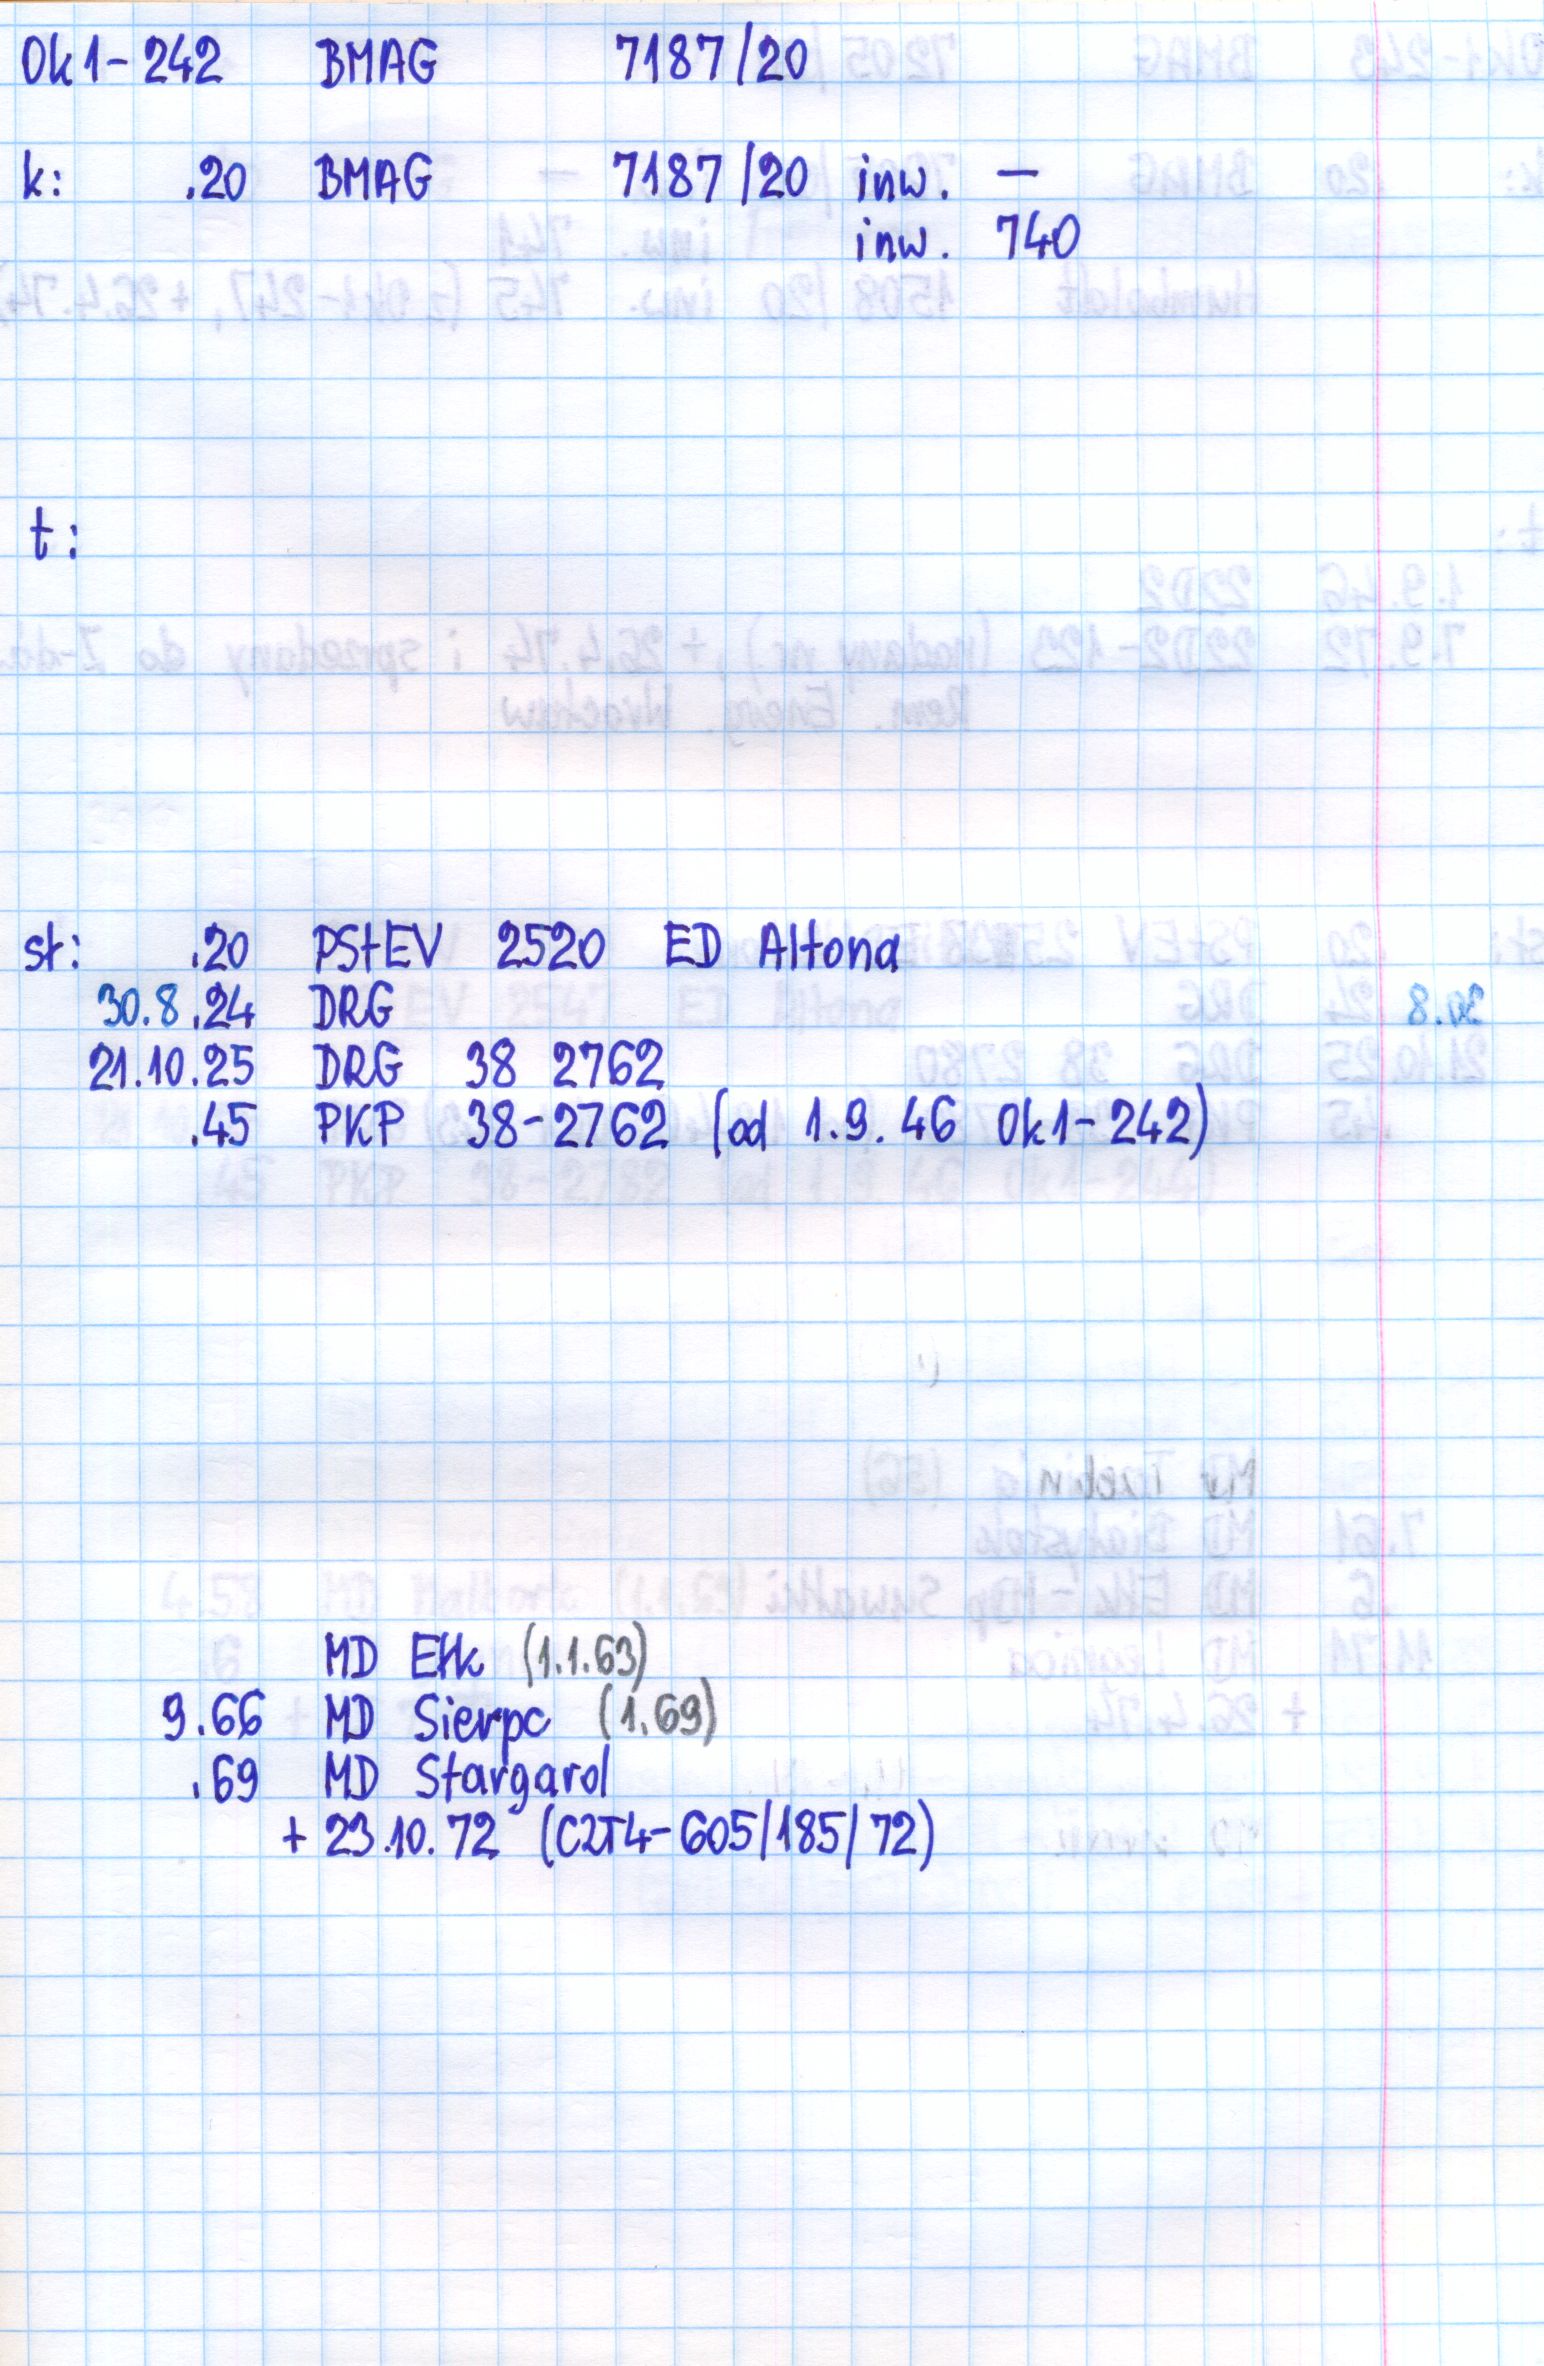 Ok1-242 BMAG 7187/20
k: .20 BMAG 7187/20 inw. —
inw. 740
t:
st: .20 PStEV 2520 ED Altona
30.8.24 DRG
21.10.25 DRG 38 2762
.45 PKP 38-2762 (od 1.9.46 Ok1-242)
MD Ełk (1.1.63)
9.66 MD Sierpc (1.69)
.69 MD Stargard
+ 23.10.72 (C2T4-605/185/72)